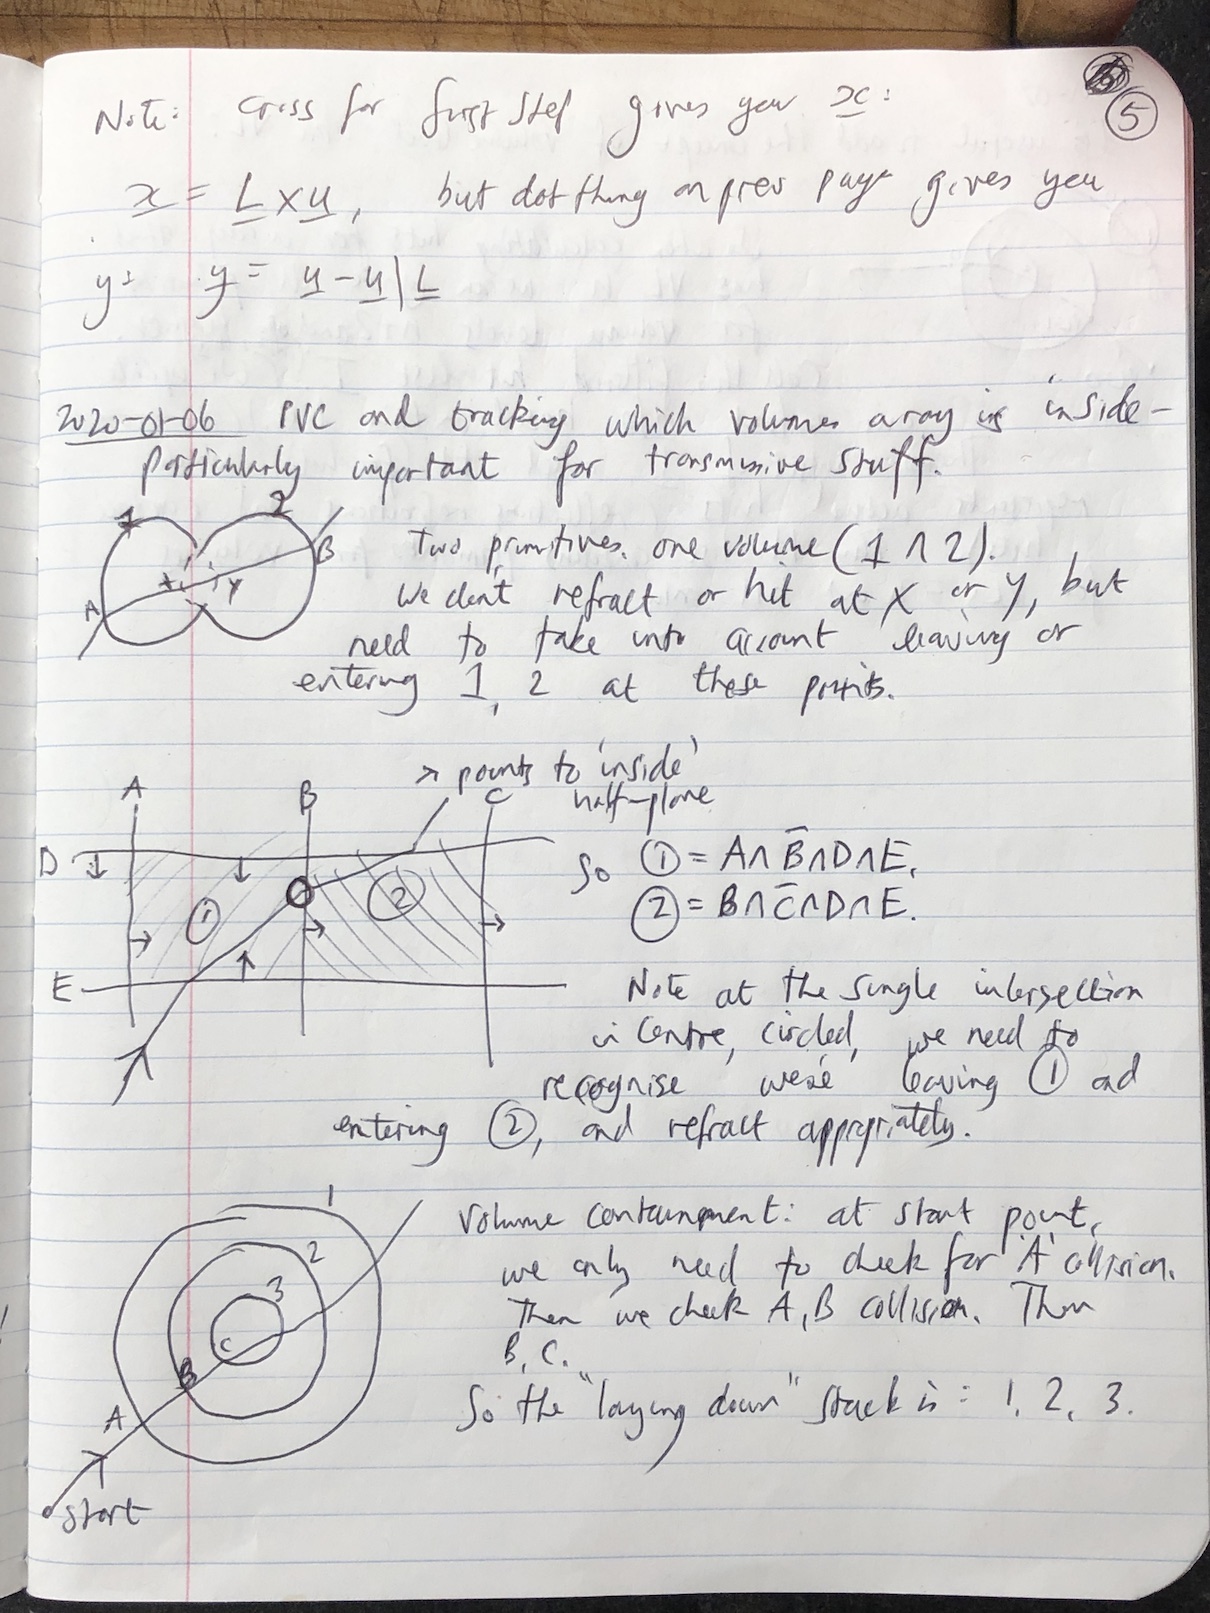 5
Note: cross for first step gives you x:
x = L × u, but dot thing on prev page gives you
y: y = u - u|L
2020-01-06 PVC and tracking which volumes a ray is inside -
particularly important for transmissive stuff.
1 2
A x y B
Two primitives, one volume (1 ∩ 2).
We don't refract or hit at X or Y, but
need to take into account leaving or
entering 1, 2 at these points.
→ points to 'inside'
half-plane
A B C
D
E
1 2
So ① = A∩B̄∩D∩E,
② = B∩C̄∩D∩E.
Note at the single intersection
in centre, circled, we need to
recognise we're leaving ① and
entering ②, and refract appropriately.
1
2
3
C
B
A
start
Volume containment: at start point,
we only need to check for 'A' collision.
Then we check A, B collision. Then
B, C.
So the "laying down" stack is: 1, 2, 3.